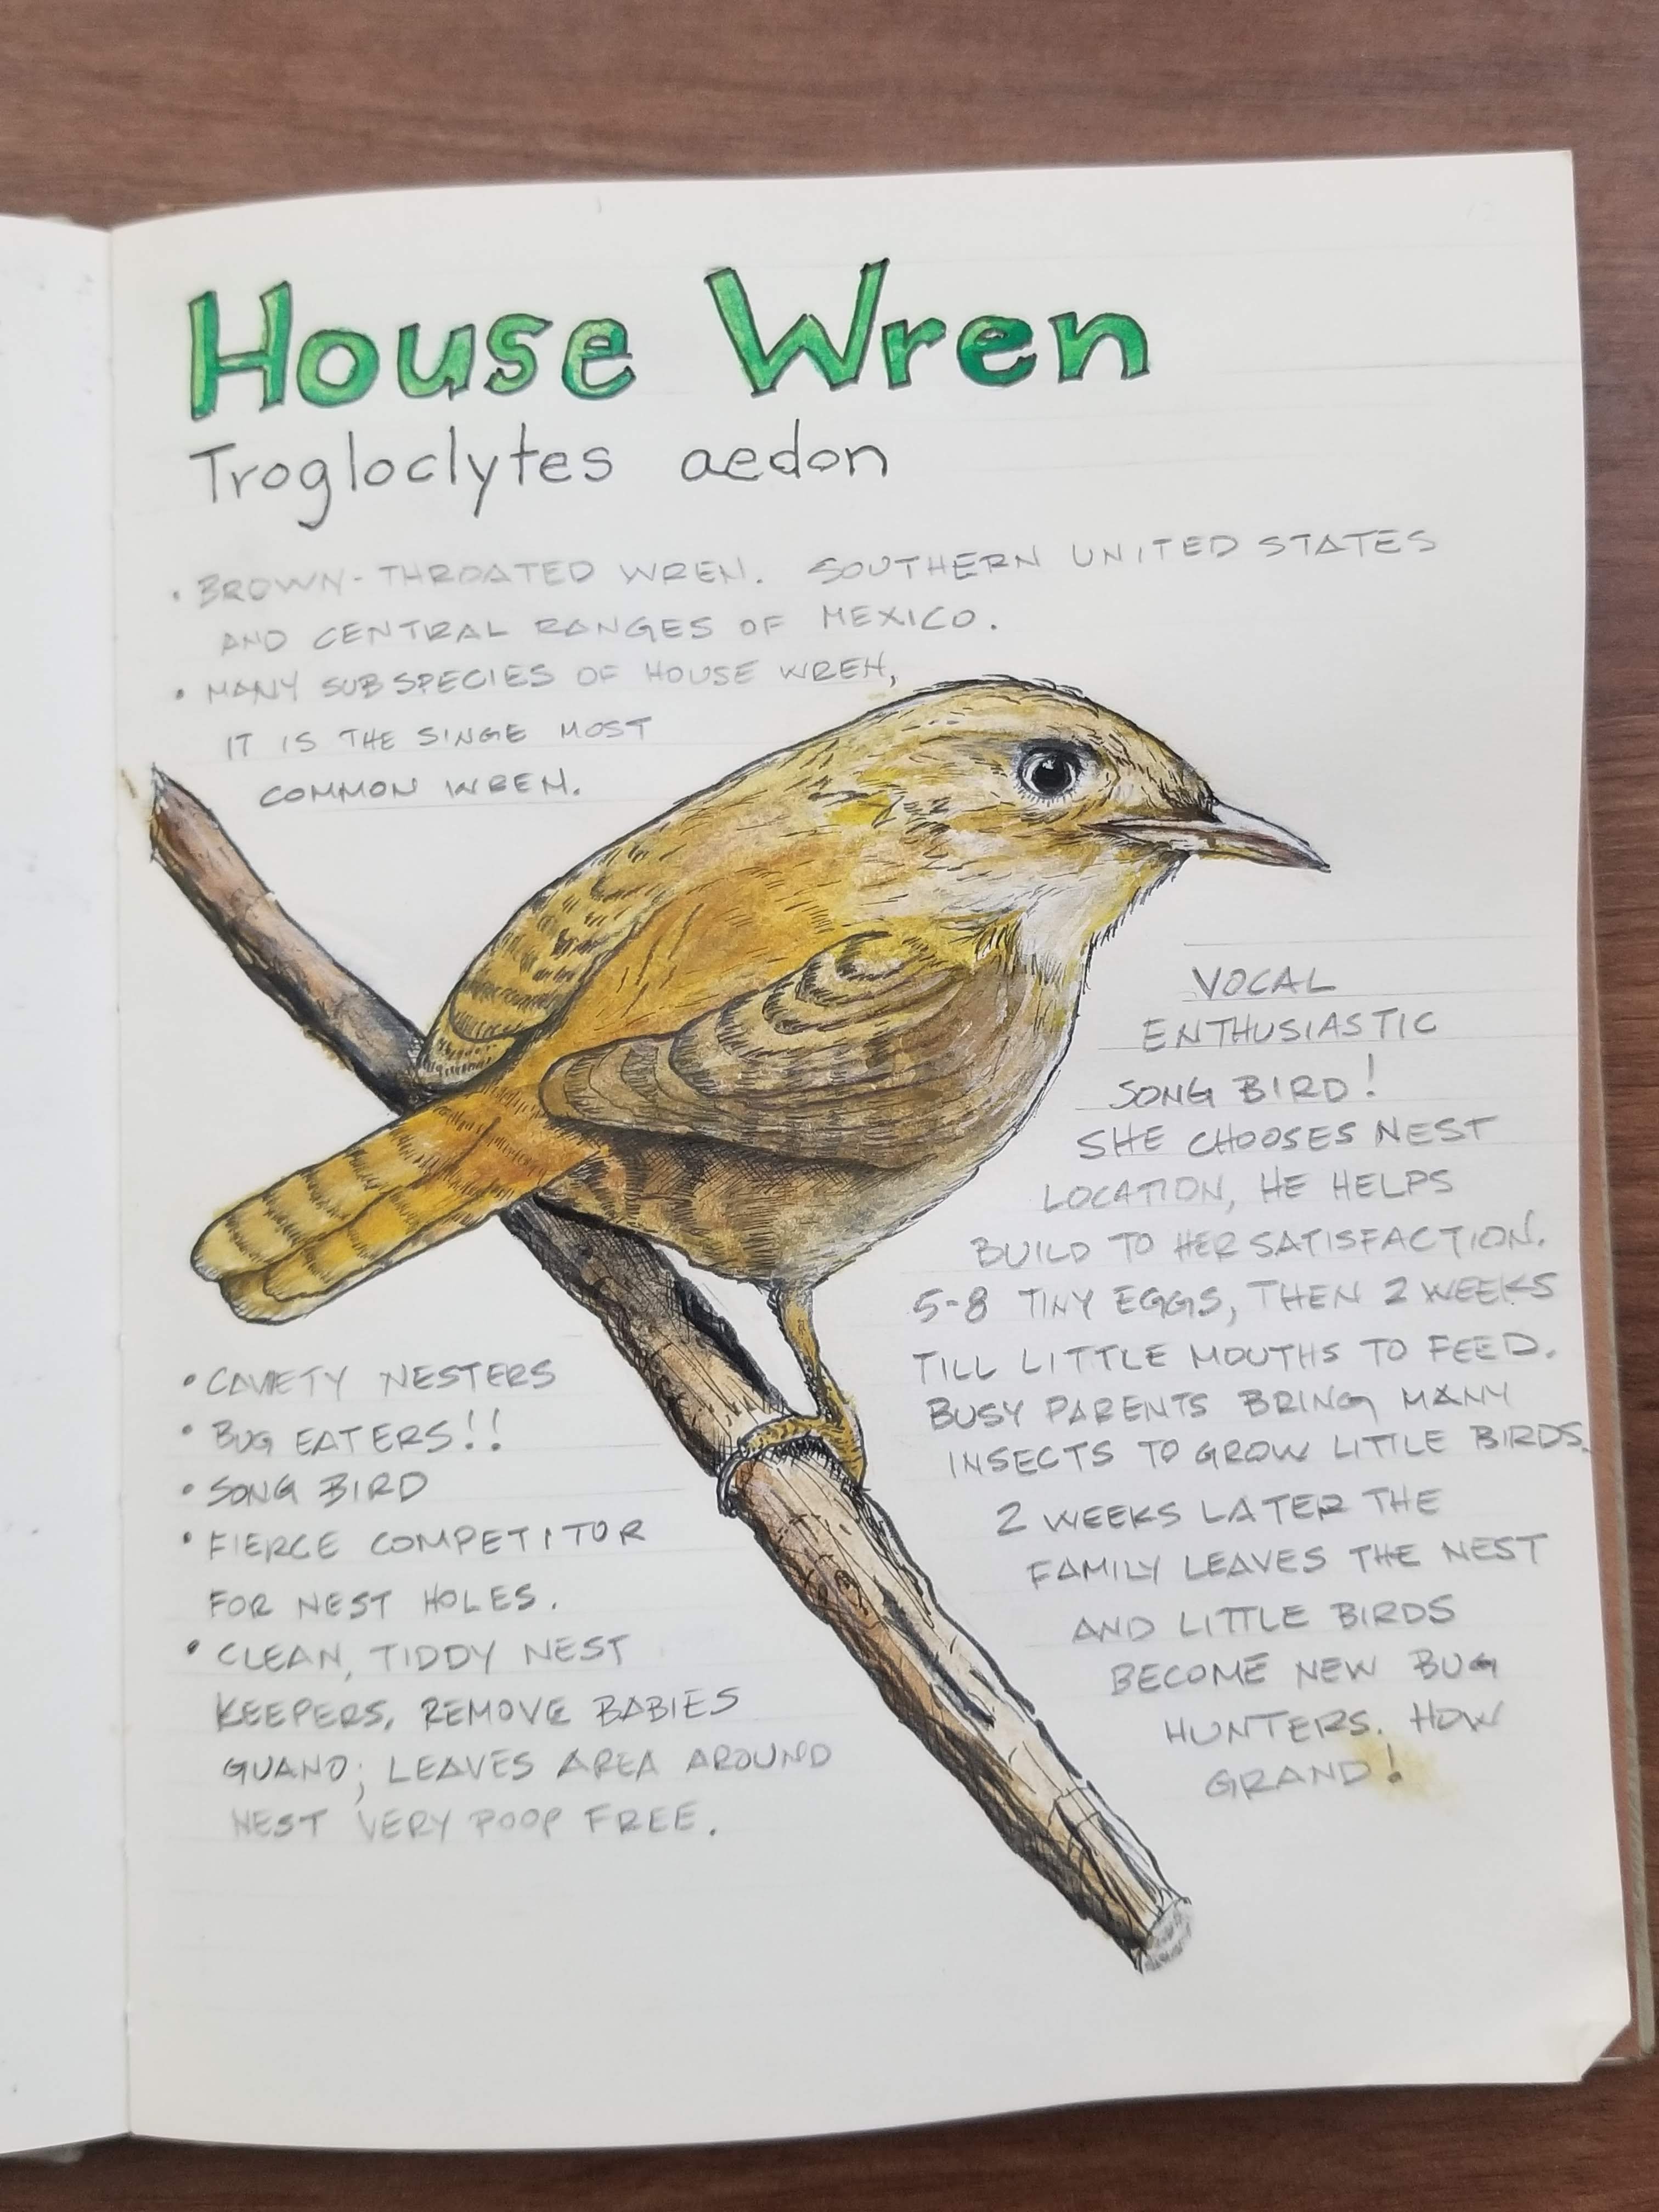 House Wren
Trogloclytes aedon
• BROWN-THROATED WREN. SOUTHERN UNITED STATES
AND CENTRAL RANGES OF MEXICO.
• MANY SUBSPECIES OF HOUSE WREN,
IT IS THE SINGE MOST
COMMON WREN.
VOCAL
ENTHUSIASTIC
SONG BIRD!
SHE CHOOSES NEST
LOCATION, HE HELPS
BUILD TO HER SATISFACTION.
5-8 TINY EGGS, THEN 2 WEEKS
TILL LITTLE MOUTHS TO FEED.
BUSY PARENTS BRING MANY
INSECTS TO GROW LITTLE BIRDS.
2 WEEKS LATER THE
FAMILY LEAVES THE NEST
AND LITTLE BIRDS
BECOME NEW BUG
HUNTERS. HOW
GRAND!
• CAVIETY NESTERS
• BUG EATERS!!
• SONG BIRD
• FIERCE COMPETITOR
FOR NEST HOLES.
• CLEAN, TIDDY NEST
KEEPERS, REMOVE BABIES
GUANO; LEAVES AREA AROUND
NEST VERY POOP FREE.